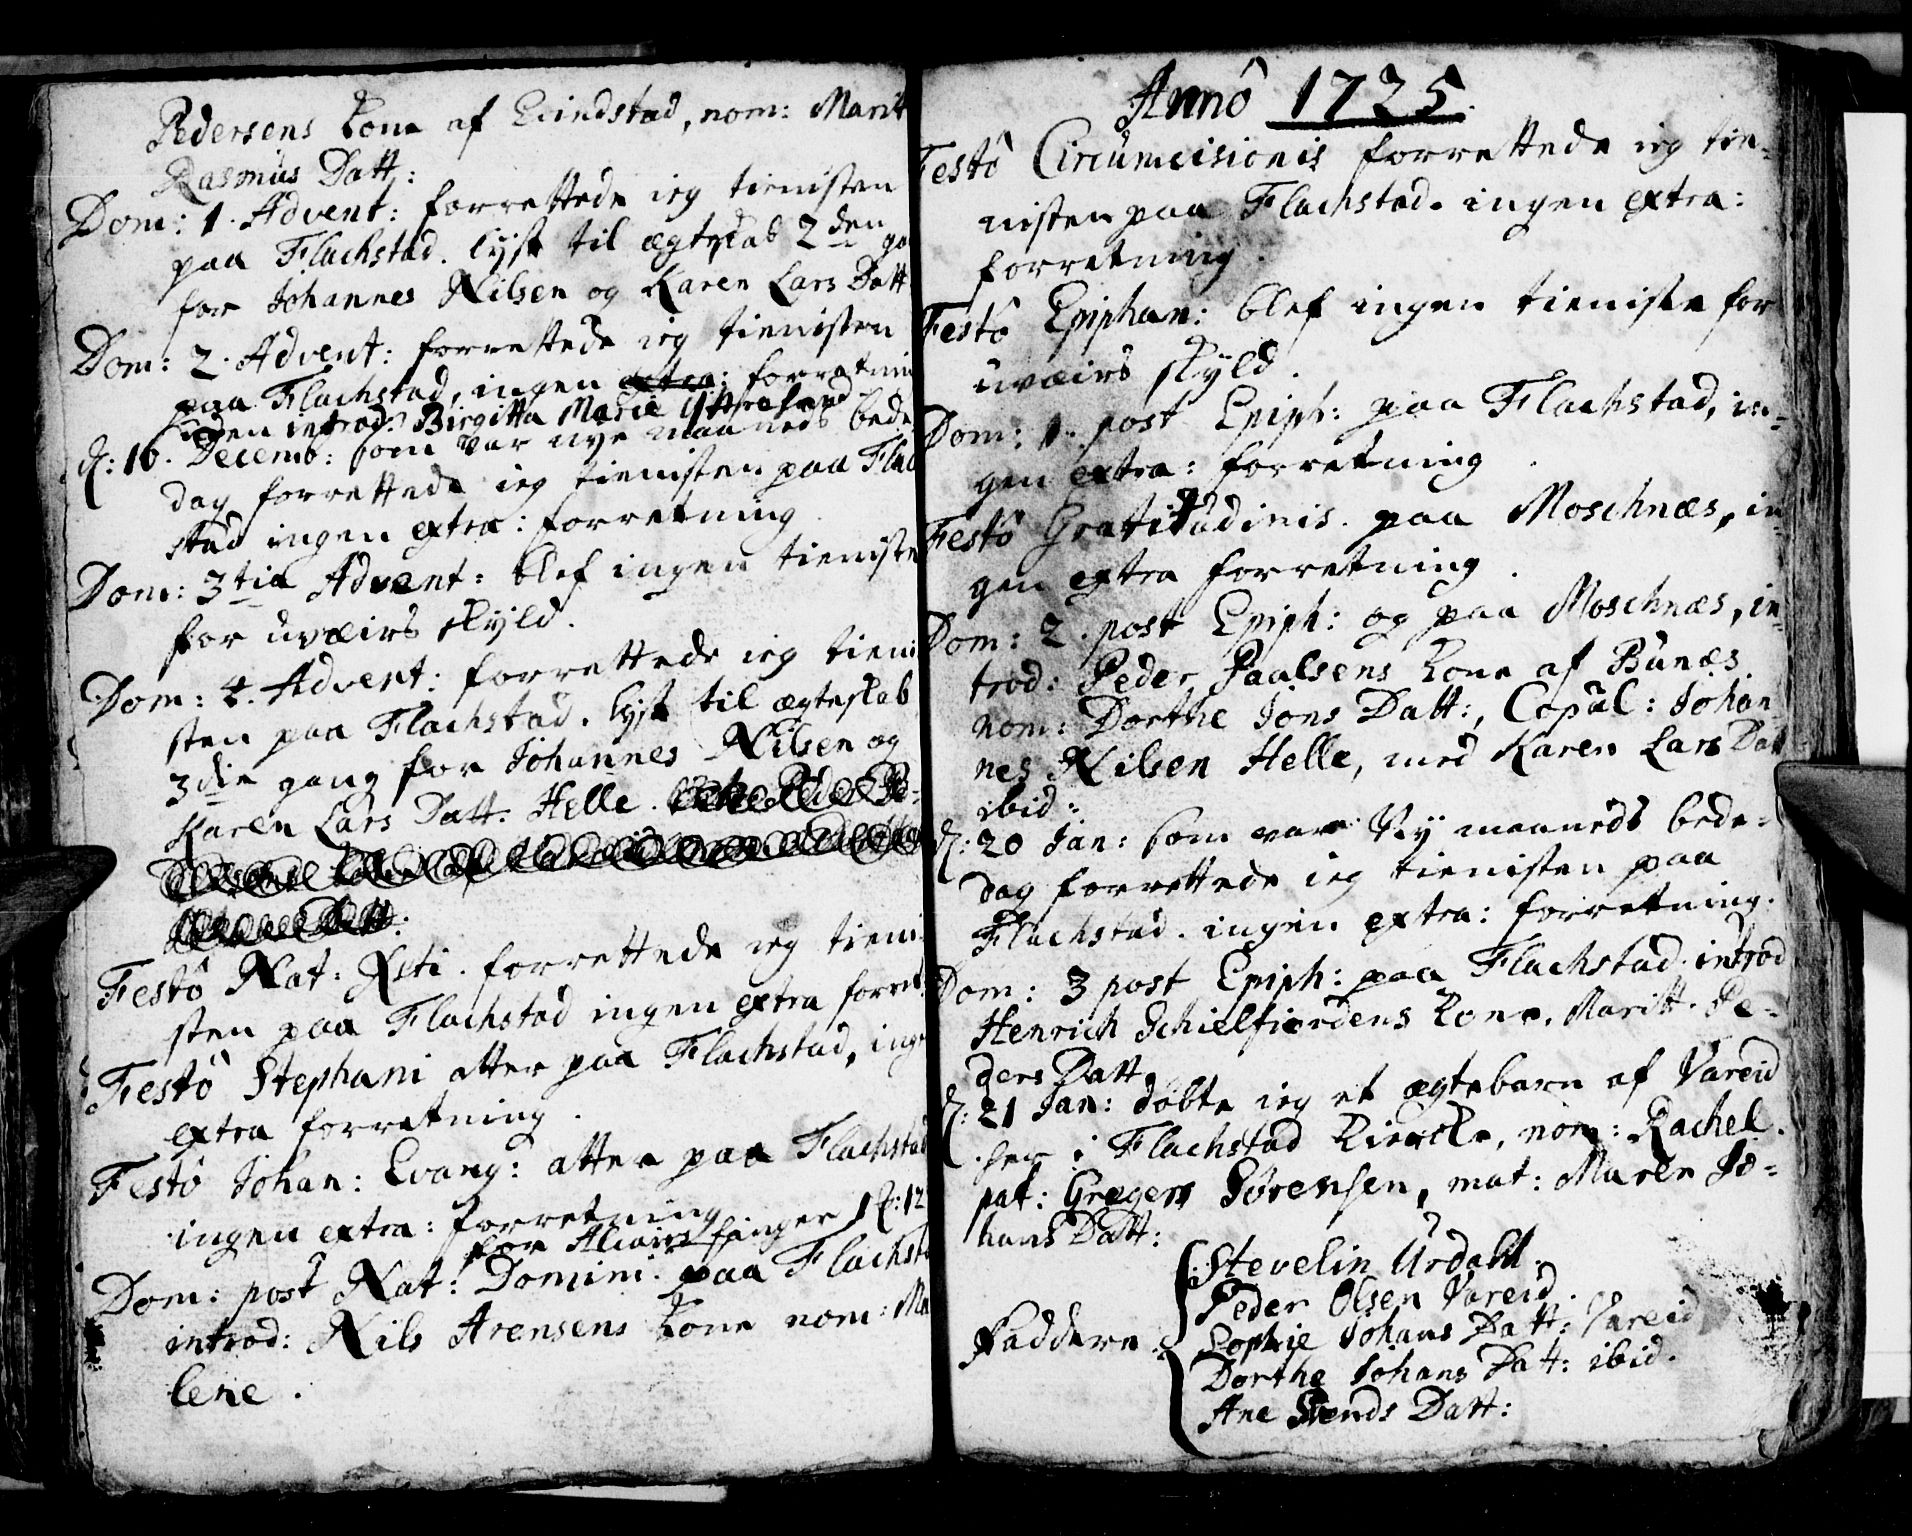 Pedersens Kone af Lundstad, nom: Marit
Rasmus Datt:
Dom: 1. Advent: forrettede ieg tienisten
paa Flachstad. lyst til ægteskab 2den ga
for Johannes Nilsen og Karen Lars Datt
Dom: 2. Advent: forrettede ieg tienisten
paa Flachstad, ingen extra: forretnin
uden introd: Birgitta Marie
d: 16. Decemb: som var nye maaneds bede
dag forrettede ieg tienisten paa Flac
stad ingen extra: forretning
Dom: 3tia Advent: blef ingen tieniste
for uvæirs skyld.
Dom: 4. Advent: forrettede ieg tieni
sten paa Flachstad. lyst til ægteskab
3die gang for Johannes Nilsen og
Karen Lars Datt. Helle.
Festo Nat: Xsti. forrettede ieg tieni
sten paa Flachstad ingen extra forret
Festo Stephani atter paa Flachstad, inge
extra forretning.
Festo Johan: Evang: atter paa Flachstad
ingen extra: forretning
for
Dom: post Nat: Domini. paa Flachsta
introd: Nils Arensens Kone nom: Ma
lene.
Anno 1725.
Festo Circumcisionis forrettede ieg tie-
nisten paa Flachstad. ingen extra:
forretning.
Festo Epiphan: blef ingen tieniste for
uvæirs skyld.
Dom: 1. post Epiph: paa Flachstad, in-
gen extra: forretning
Festo Gratitudinis. paa Moschnæs, in-
gen extra forretning.
Dom: 2. post Epiph: og paa Moschnæs, in-
trod: Peder Paalsens Kone af Bunæs
nom: Dorthe Jons Datt:, Copul: Johan-
nes Nilsen Helle, med Karen Lars Datt
ibid:
d: 20 Jan: som var Ny maaneds bede-
dag forrettede ieg tienisten paa
Flachstad. ingen extra: forretning.
Dom: 3 post Epiph: paa Flachstad. introd
Henrich Schielfiordens Kone. Maritt. Pe-
ders Datt.
d: 21 Jan: døbte ieg et ægtebarn af Vareid
her i Flachstad Kiercke, nom: Rachel.
pat: Gregers Sørensen, mat: Maren Jo-
hans Datt:
Faddere. Stevelin Urdahl.
Peder Olsen Vareid.
Sophie Johans Datt: Vareid
Dorthe Johans Datt: ibid.
Ane Svends Datt: